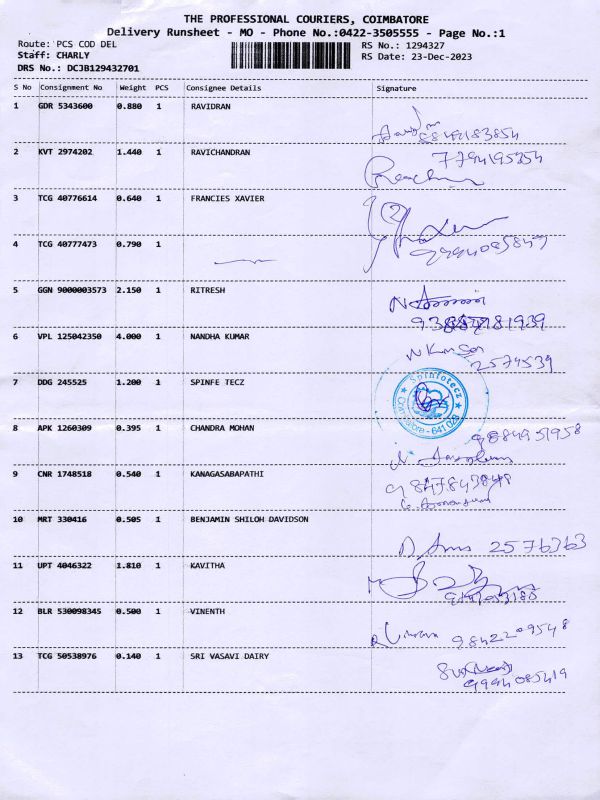 THE PROFESSIONAL COURIERS, COIMBATORE
Delivery Runsheet - MO - Phone No.:0422-3505555 - Page No.:1
Route: PCS COD DEL RS No.: 1294327
Staff: CHARLY RS Date: 23-Dec-2023
DRS No.: DCJB129432701
S No Consignment No Weight PCS Consignee Details Signature
1 GDR 5343600 0.880 1 RAVIDRAN
2 KVT 2974202 1.440 1 RAVICHANDRAN
7794195354
3 TCG 40776614 0.640 1 FRANCIES XAVIER
4 TCG 40777473 0.790 1
5 GGN 9000003573 2.150 1 RITRESH
6 VPL 125042350 4.000 1 NANDHA KUMAR
2574539
7 DDG 245525 1.200 1 SPINFE TECZ
Spinfotecz
Coimbatore - 641 028
8 APK 1260309 0.395 1 CHANDRA MOHAN
9884951958
9 CNR 1748518 0.540 1 KANAGASABAPATHI
9847843848
10 MRT 330416 0.505 1 BENJAMIN SHILOH DAVIDSON
2576363
11 UPT 4046322 1.810 1 KAVITHA
12 BLR 530098345 0.500 1 VINENTH
9842209548
13 TCG 50538976 0.140 1 SRI VASAVI DAIRY
9994085419